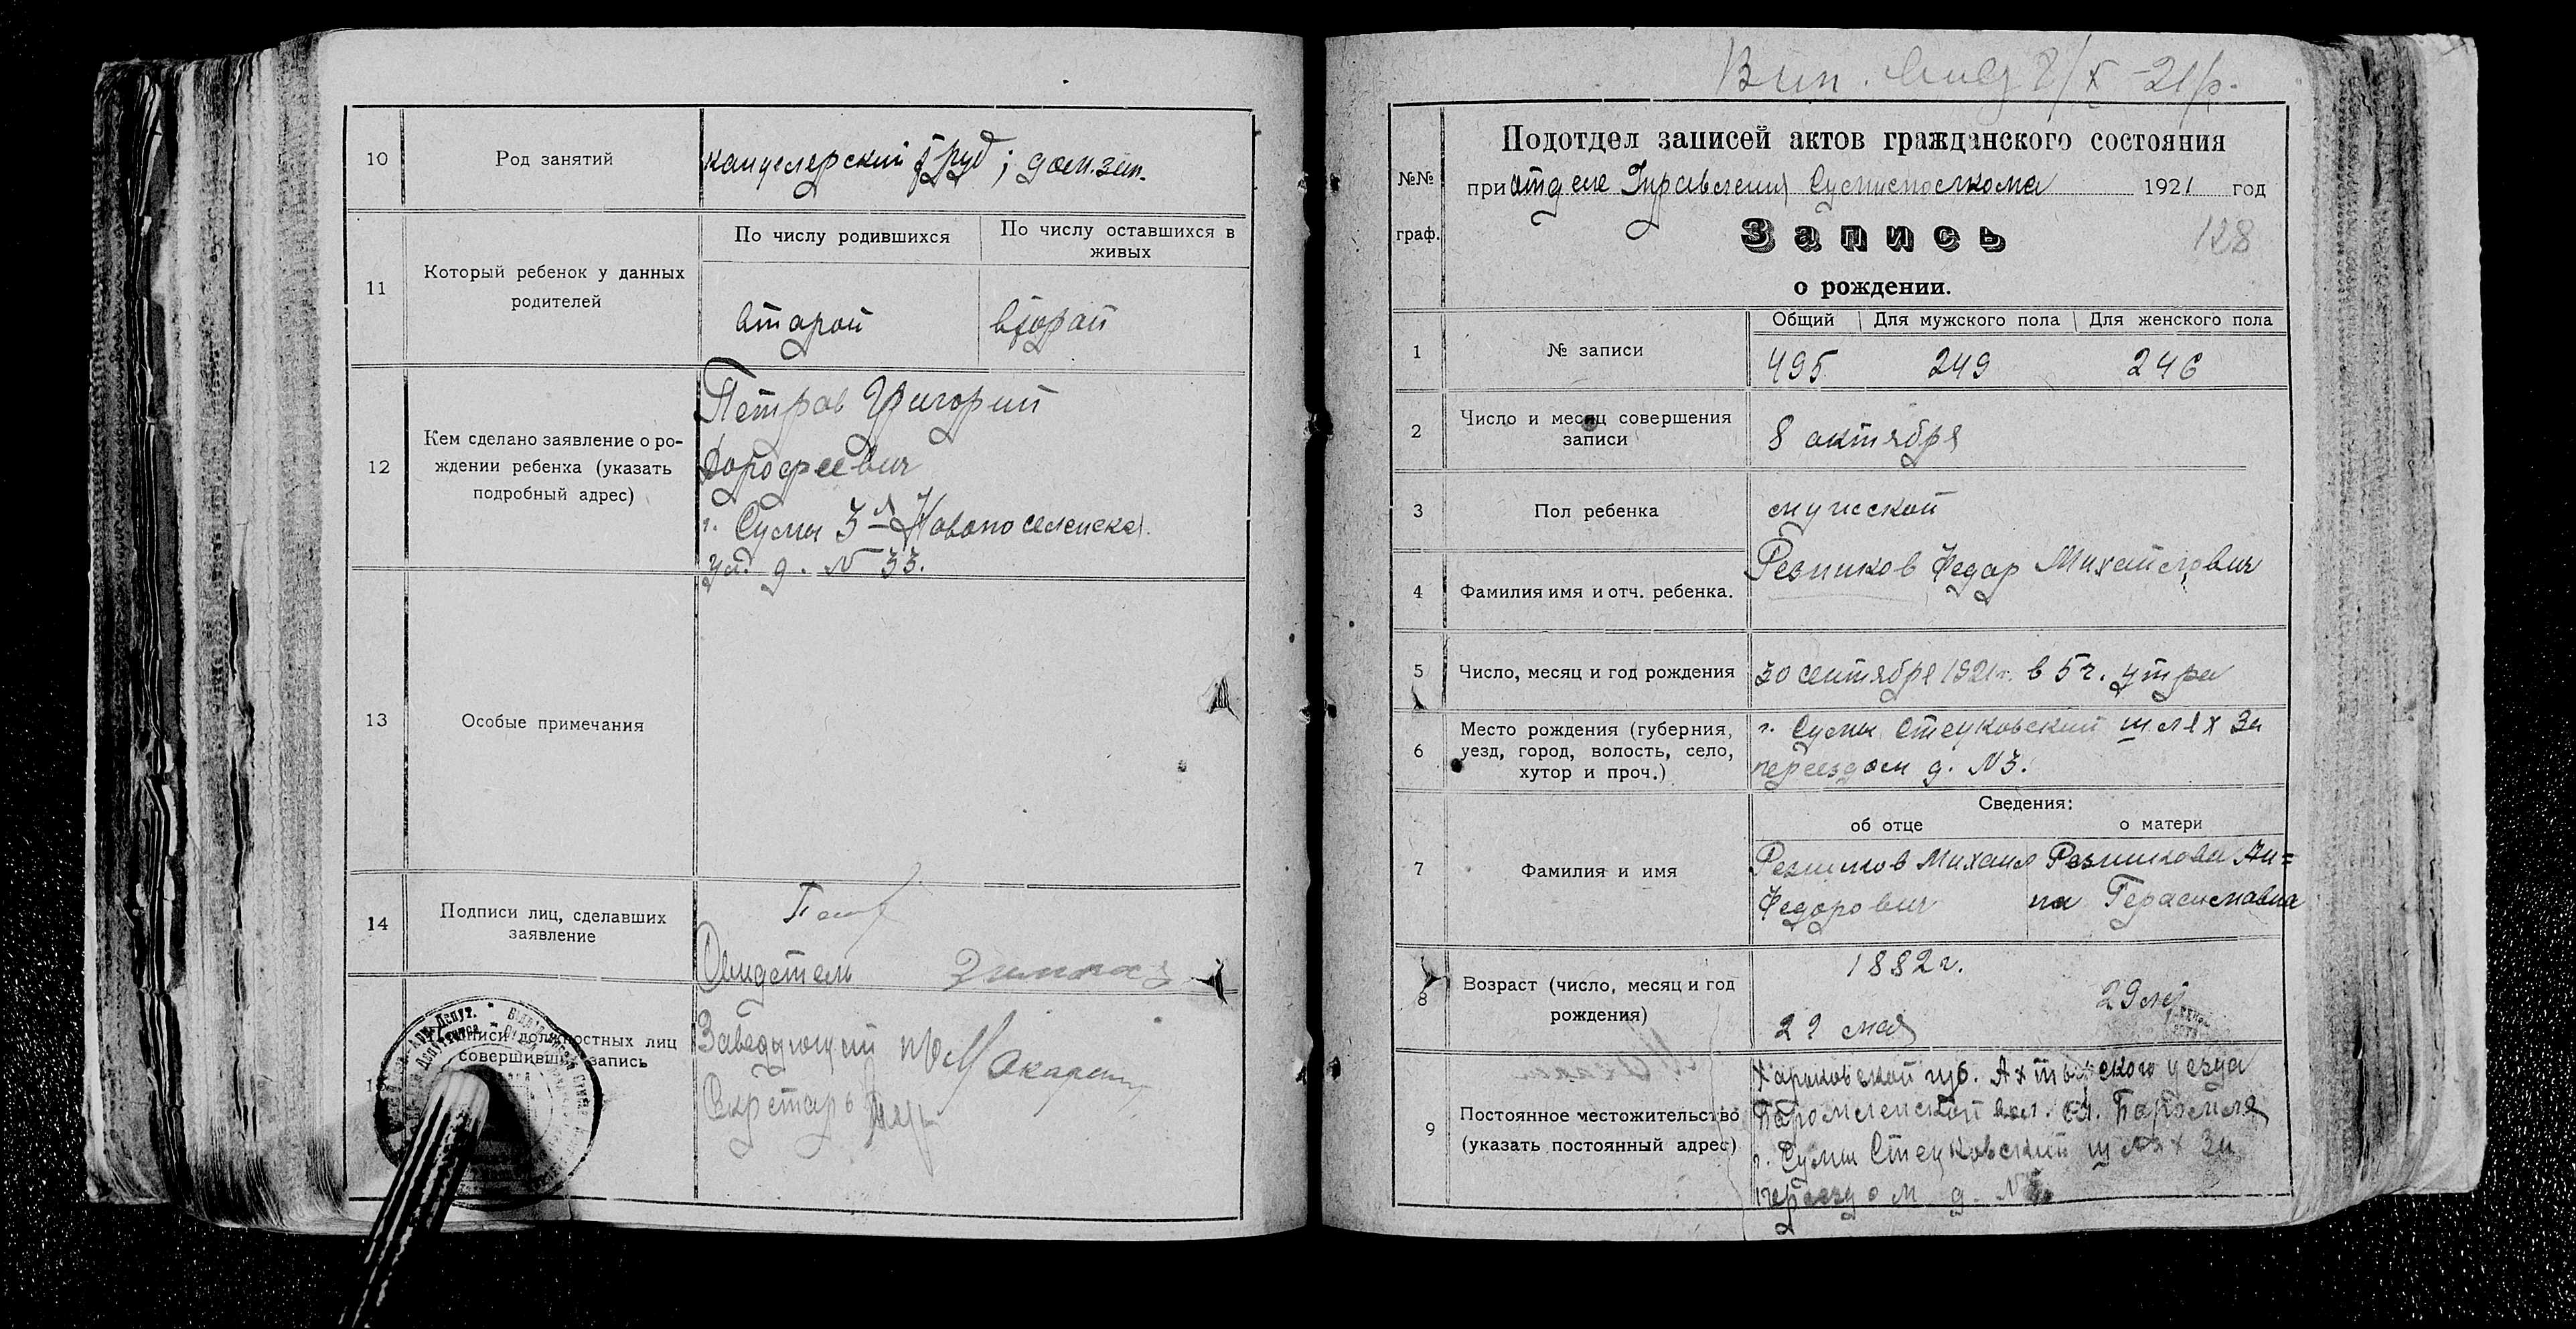 10
Род занятий
канцелярский труд; дом. зан.
11
Который ребенок у данных
родителей
По числу родившихся
По числу оставшихся в
живых
второй
второй
12
Кем сделано заявление о ро-
ждении ребенка (указать
подробный адрес)
Петров Григорий
Дорофеевич
г. Сумы 3-я Новопоселенская
ул. д. № 33.
13
Особые примечания
14
Подписи лиц, сделавших
заявление
Свидетель
15
Подписи должностных лиц
совершивших запись
Заведующий
Секретарь
Вип. 8/X-21р.
№№
граф.
Подотдел записей актов гражданского состояния
при отделе Управления 1921 год
Запись
128
о рождении.
1
№ записи
Общий Для мужского пола Для женского пола
495 249 246
2
Число и месяц совершения
записи
8 октября
3
Пол ребенка
мужской
4
Фамилия имя и отч. ребенка.
Резников Федор Михайлович
5
Число, месяц и год рождения
30 сентября 1921 г. в 5 ч. утра
6
Место рождения (губерния,
уезд, город, волость, село,
хутор и проч.)
г. Сумы Стецковский шлях За
переездом д. №3.
Сведения:
об отце
о матери
7
Фамилия и имя
Резников Михаил
Федорович
Резникова Ан=
на Герасимовна
8
Возраст (число, месяц и год
рождения)
1882 г.
29 мая
29 лет
9
Постоянное местожительство
(указать постоянный адрес)
Харьковской губ. Ахтырского уезда
Боромлянской вол. сл. Боромля
г. Сумы Стецковский шлях За
переездом д. №